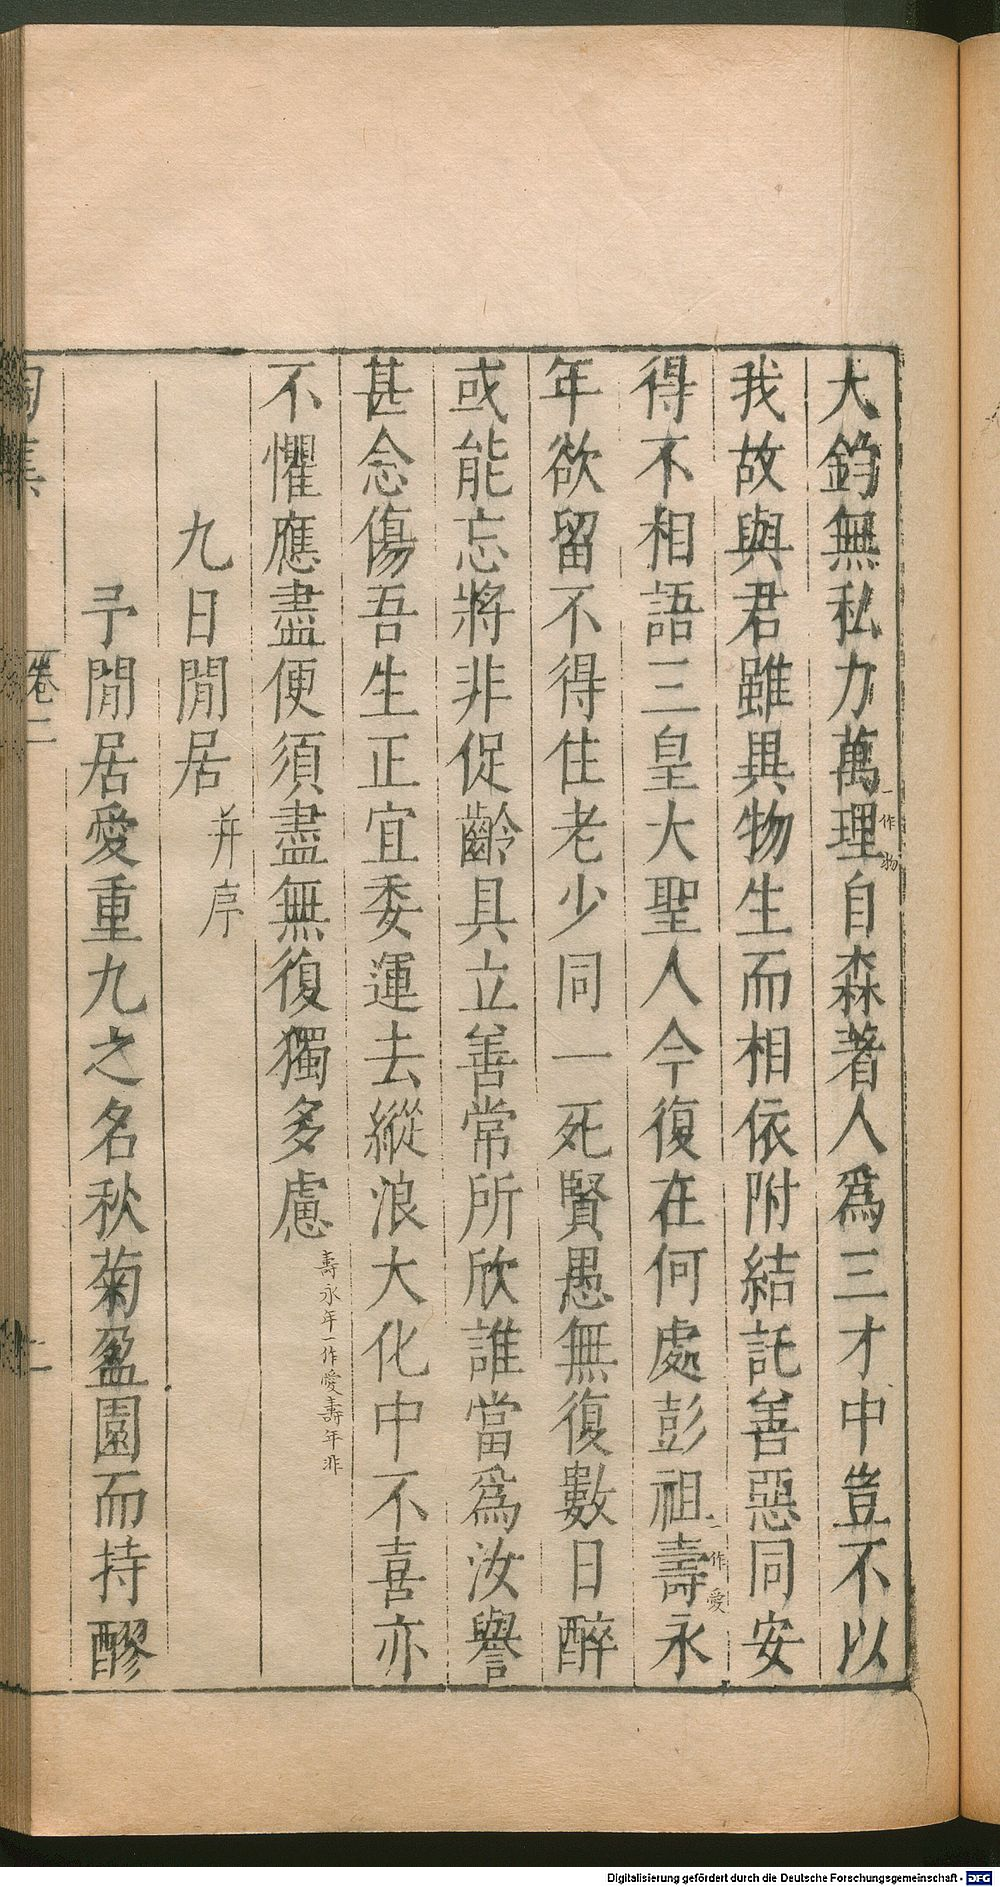 大鈞無私力萬理一作物自森著人爲三才中豈不以
我故與君雖異物生而相依附結託善惡同安
得不相語三皇大聖人今復在何處彭祖壽一作愛永
年欲留不得住老少同一死賢愚無復數日醉
或能忘將非促齡具立善常所欣誰當爲汝譽
甚念傷吾生正宜委運去縱浪大化中不喜亦
不懼應盡便須盡無復獨多慮壽永年一作愛壽年非
九日閒居并序
予閒居愛重九之名秋菊盈園而持醪
陶集 卷二 二
Digitalisierung gefördert durch die Deutsche Forschungsgemeinschaft - DFG